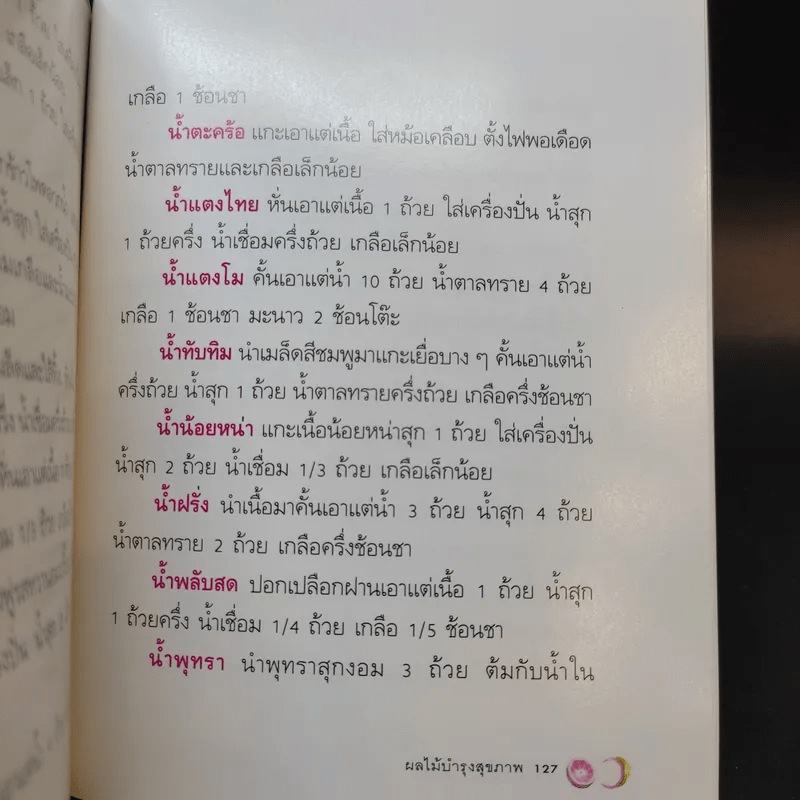 เกลือ 1 ช้อนชา
น้ำตะคร้อ แกะเอาแต่เนื้อ ใส่หม้อเคลือบ ตั้งไฟพอเดือด
น้ำตาลทรายและเกลือเล็กน้อย
น้ำแตงไทย หั่นเอาแต่เนื้อ 1 ถ้วย ใส่เครื่องปั่น น้ำสุก
1 ถ้วยครึ่ง น้ำเชื่อมครึ่งถ้วย เกลือเล็กน้อย
น้ำแตงโม คั้นเอาแต่น้ำ 10 ถ้วย น้ำตาลทราย 4 ถ้วย
เกลือ 1 ช้อนชา มะนาว 2 ช้อนโต๊ะ
น้ำทับทิม นำเมล็ดสีชมพูมาแกะเยื่อบาง ๆ คั้นเอาแต่น้ำ
ครึ่งถ้วย น้ำสุก 1 ถ้วย น้ำตาลทรายครึ่งถ้วย เกลือครึ่งช้อนชา
น้ำน้อยหน่า แกะเนื้อน้อยหน่าสุก 1 ถ้วย ใส่เครื่องปั่น
น้ำสุก 2 ถ้วย น้ำเชื่อม 1/3 ถ้วย เกลือเล็กน้อย
น้ำฝรั่ง นำเนื้อมาคั้นเอาแต่น้ำ 3 ถ้วย น้ำสุก 4 ถ้วย
น้ำตาลทราย 2 ถ้วย เกลือครึ่งช้อนชา
น้ำพลับสด ปอกเปลือกฝานเอาแต่เนื้อ 1 ถ้วย น้ำสุก
1 ถ้วยครึ่ง น้ำเชื่อม 1/4 ถ้วย เกลือ 1/5 ช้อนชา
น้ำพุทรา นำพุทราสุกงอม 3 ถ้วย ต้มกับน้ำใน
ผลไม้บำรุงสุขภาพ 127